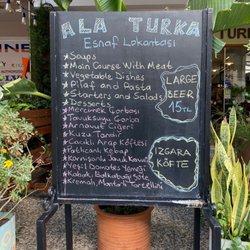 ALA TURKA
Esnaf Lokantası
*Soups
*Main Course With Meat
*Vegetable Dishes
*Pilaf and Pasta
*Starters and Salads
*Desserts
*Mercimek Çorbası
*Tavuksuyu Çorba
*Arnavut Ciğeri
*Kuzu Tandır
*Cacıklı Arap Köftesi
*Patlıcanlı Kebap
*Karnıbahar
*Yeşil Domates Yemeği
*Kabak,
*Kremalı, Mantarlı Tortellini
LARGE
BEER
15TL
IZGARA
KÖFTE